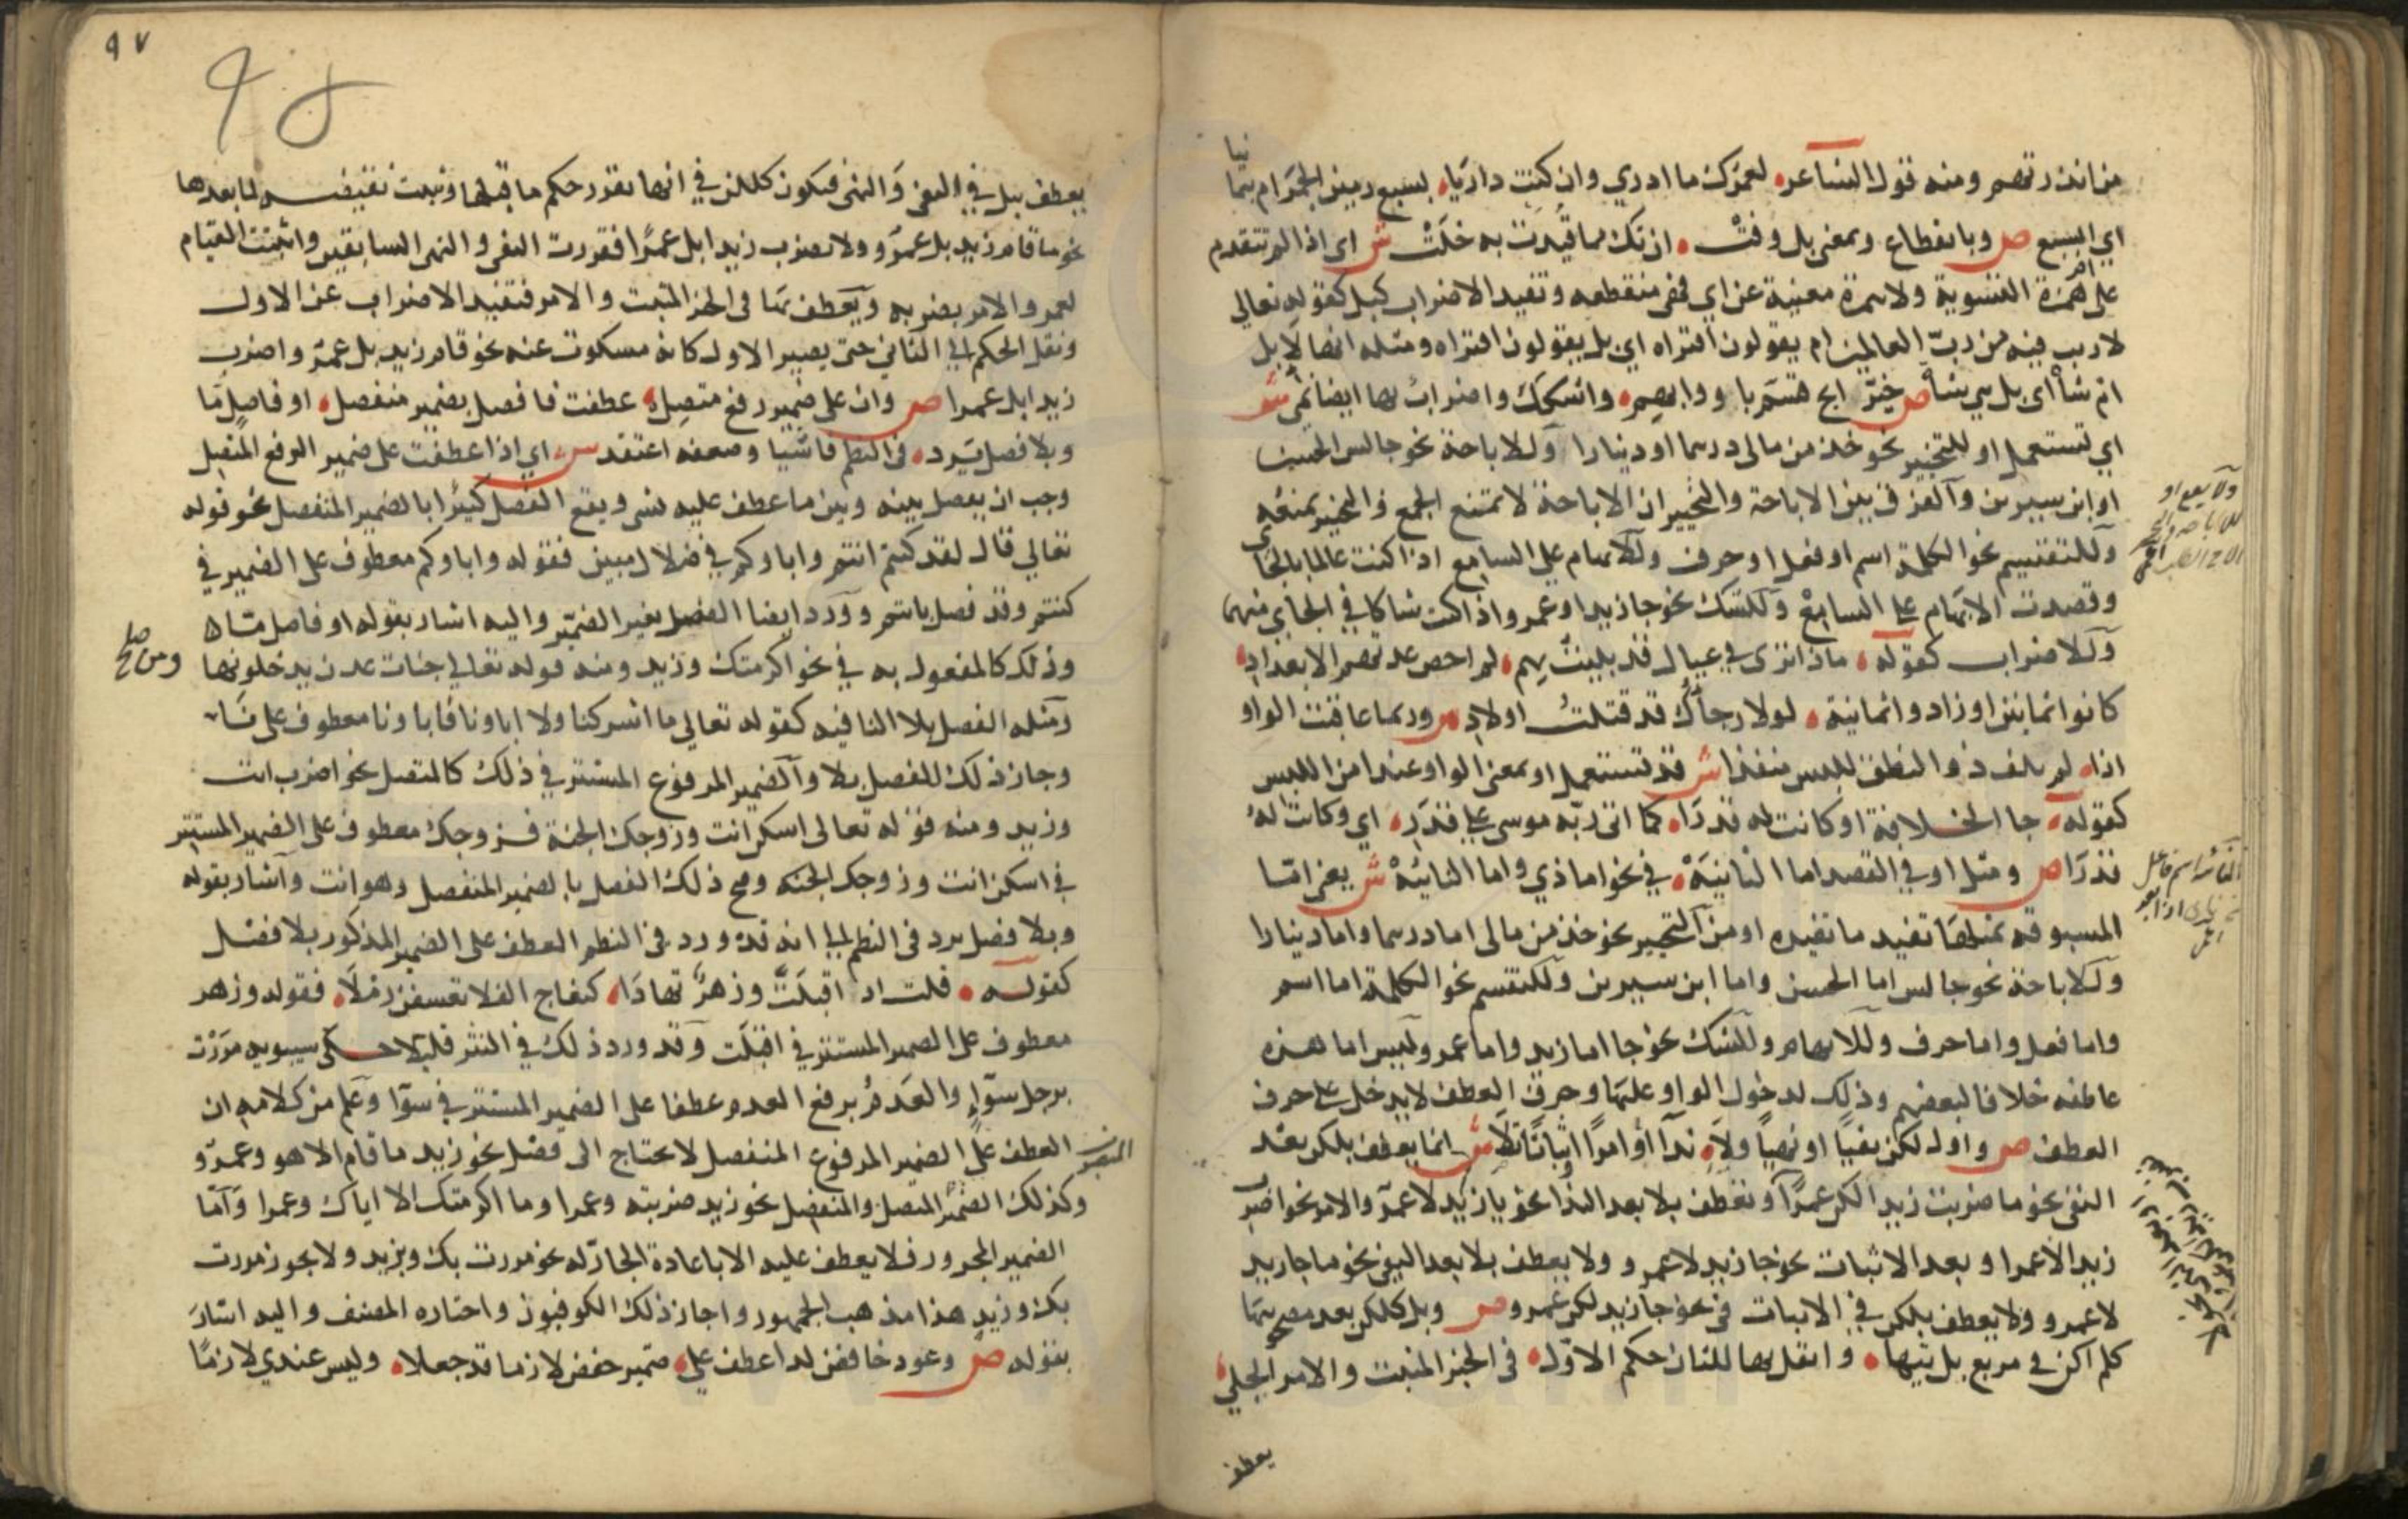 من انذرتهم ومنه قول الشاعر لعمرك ما ادري وان كنت داريا بسبع رمين الجمرام بثما
نيا
اي ابسبع ص وبانقطاع وبمعنى بل وفت ان تك مما قيدت به خلت ش اي اذا لم تتقدم
على ام همزة التسوية ولا همزة مغنية عن اي فهي منقطعه وتفيد الاضراب كبل كقوله تعالي
لا ريب فيه من رب العالمين ام يقولون افتراه اي بل يقولون افتراه ومثله انها لابل
ام شا اي بل هي شا ص خير ابح قسم باو وابهم واشكك واضراب بها ايضا نمي ش
اي تستعمل او للتخيير نحو خذ من مالي درهما او دينارا وللاباحة نحو جالس الحسن
او ابن سيرين والفرق بين الاباحة والتخيير ان الاباحة لا تمنع الجمع والتخيير يمنعه
وللتقسيم نحو الكلمة اسم او فعل او حرف وللابهام على السامع اذا كنت عالما بالجاي
وقصدت الابهام على السامع وللشك نحو جا زيد او عمرو اذا كنت شاكا في الجاي منهما
وللاضراب كقوله ماذا ترى في عيال قد بليت بهم لم احص عدتهم الا بعداد
كانوا ثمانين او زادوا ثمانية لولا رجاك قد قتلت اولاد ص وربما عاقبت الواو
اذا لم يلف ذو النطق للبس منفذا ش قد تستعمل او بمعنى الواو عند امن اللبس
كقوله جا الخلافة او كانت له قدرا كما اتى ربه موسى على قدر اي وكانت له
قدرا ص ومثل او في القصد اما الثانية في نحو اما ذي واما النائية ش يعني اما
المسبوقه بمثلها تفيد ما تفيده او من التخيير نحو خذ من مالي اما درهما واما دينارا
وللاباحة نحو جالس اما الحسن واما ابن سيرين وللتقسيم نحو الكلمة اما اسم
واما فعل واما حرف وللابهام وللشك نحو جا اما زيد واما عمرو وليس اما هذه
عاطفه خلافا لبعضهم وذلك لدخول الواو عليها وحرف العطف لا يدخل على حرف
العطف ص واول لكن نفيا او نهيا ولا ندا او امرا او اثباتا تلا ش انما يعطف بلكن بعد
النفي نحو ما ضربت زيدا لكن عمرا ونعطف بلا بعد الندا نحو يا زيد لا عمرو والامر نحو اضرب
زيدا لا عمرا وبعد الاثبات نحو جا زيد لا عمرو ولا يعطف بلا بعد النفي نحو ما جا زيد
لا عمرو ولا يعطف بلكن في الاثبات في نحو جا زيد لكن عمرو ص وبل كلكن بعد مصحوبيها
كلم اكن في مربع بل تيها وانقل بها للثان حكم الاول في الخبر المثبت والامر الجلي
يعطف
ولا يقع او
الفائز اسم فاعل
٩٧
يعطف ببل في النفي والنهي فيكون كلكن في انها تقرر حكم ما قبلها وتثبت نقيضه لما بعدها
نحو ما قام زيد بل عمرو ولا تضرب زيدا بل عمرا فقررت النفي والنهي السابقين واثبتت القيام
لعمرو والامر بضربه ويعطف بها في الخبر المثبت والامر فتفيد الاضراب عن الاول
ونقل الحكم الي الثاني حتى يصير الاول كانه مسكوت عنه نحو قام زيد بل عمرو واضرب
زيدا بل عمرا ص وان على ضمير رفع متصل عطفت فافصل بضمير منفصل او فاصل ما
وبلا فصل يرد في النظم فاشيا وضعفه اعتقد ش اي اذا عطفت على ضمير الرفع المتصل
وجب ان يفصل بينه وبين ما عطف عليه بشي ويقع الفصل كثيرا بالضمير المنفصل نحو قوله
تعالي قال لقد كنتم انتم واباوكم في ضلال مبين فقوله واباوكم معطوف على الضمير في
كنتم وقد فصل بانتم وورد ايضا الفصل بغير الضمير واليه اشار بقوله او فاصل ما
وذلك كالمفعول به في نحو اكرمتك وزيد ومنه قوله تعالي جنات عدن يدخلونها
ومن صلح
ومثله الفصل بلا النافيه كقوله تعالي ما اشركنا ولا اباونا فاباونا معطوف على نا
وجاز ذلك للفصل بلا والضمير المرفوع المستتر في ذلك كالمتصل نحو اضرب انت
وزيد ومنه قوله تعالى اسكن انت وزوجك الجنة فزوجك معطوف على الضمير المستتر
في اسكن انت وزوجك الجنه وصح ذلك الفصل بالضمير المنفصل وهو انت واشار بقوله
وبلا فصل يرد في النظم الي انه قد ورد في النظم العطف على الضمير المذكور بلا فصل
كقوله قلت اذ اقبلت وزهر تهادا كنعاج الفلا تعسفن رملا فقوله وزهر
معطوف على الضمير المستتر في اقبلت وقد ورد ذلك في النثر قليلا حكى سيبويه مررت
برجل سواء والعدم برفع العدم عطفا على الضمير المستتر في سوا وعلم من كلامه ان
العطف على الضمير المرفوع المنفصل لا يحتاج الى فصل نحو زيد ما قام الا هو وعمرو
وكذلك الضمير المتصل والمنفصل نحو زيد ضربته وعمرا وما اكرمتك الا اياك وعمرا واما
الضمير المجرور فلا يعطف عليه الا باعادة الجار له نحو مررت بك وبزيد ولا يجوز مررت
بك وزيد هذا مذهب الجمهور واجاز ذلك الكوفيون واختاره المصنف واليه اشار
بقوله ص وعود خافض لدا عطف على ضمير خفض لازما قد جعلا وليس عندي لازما